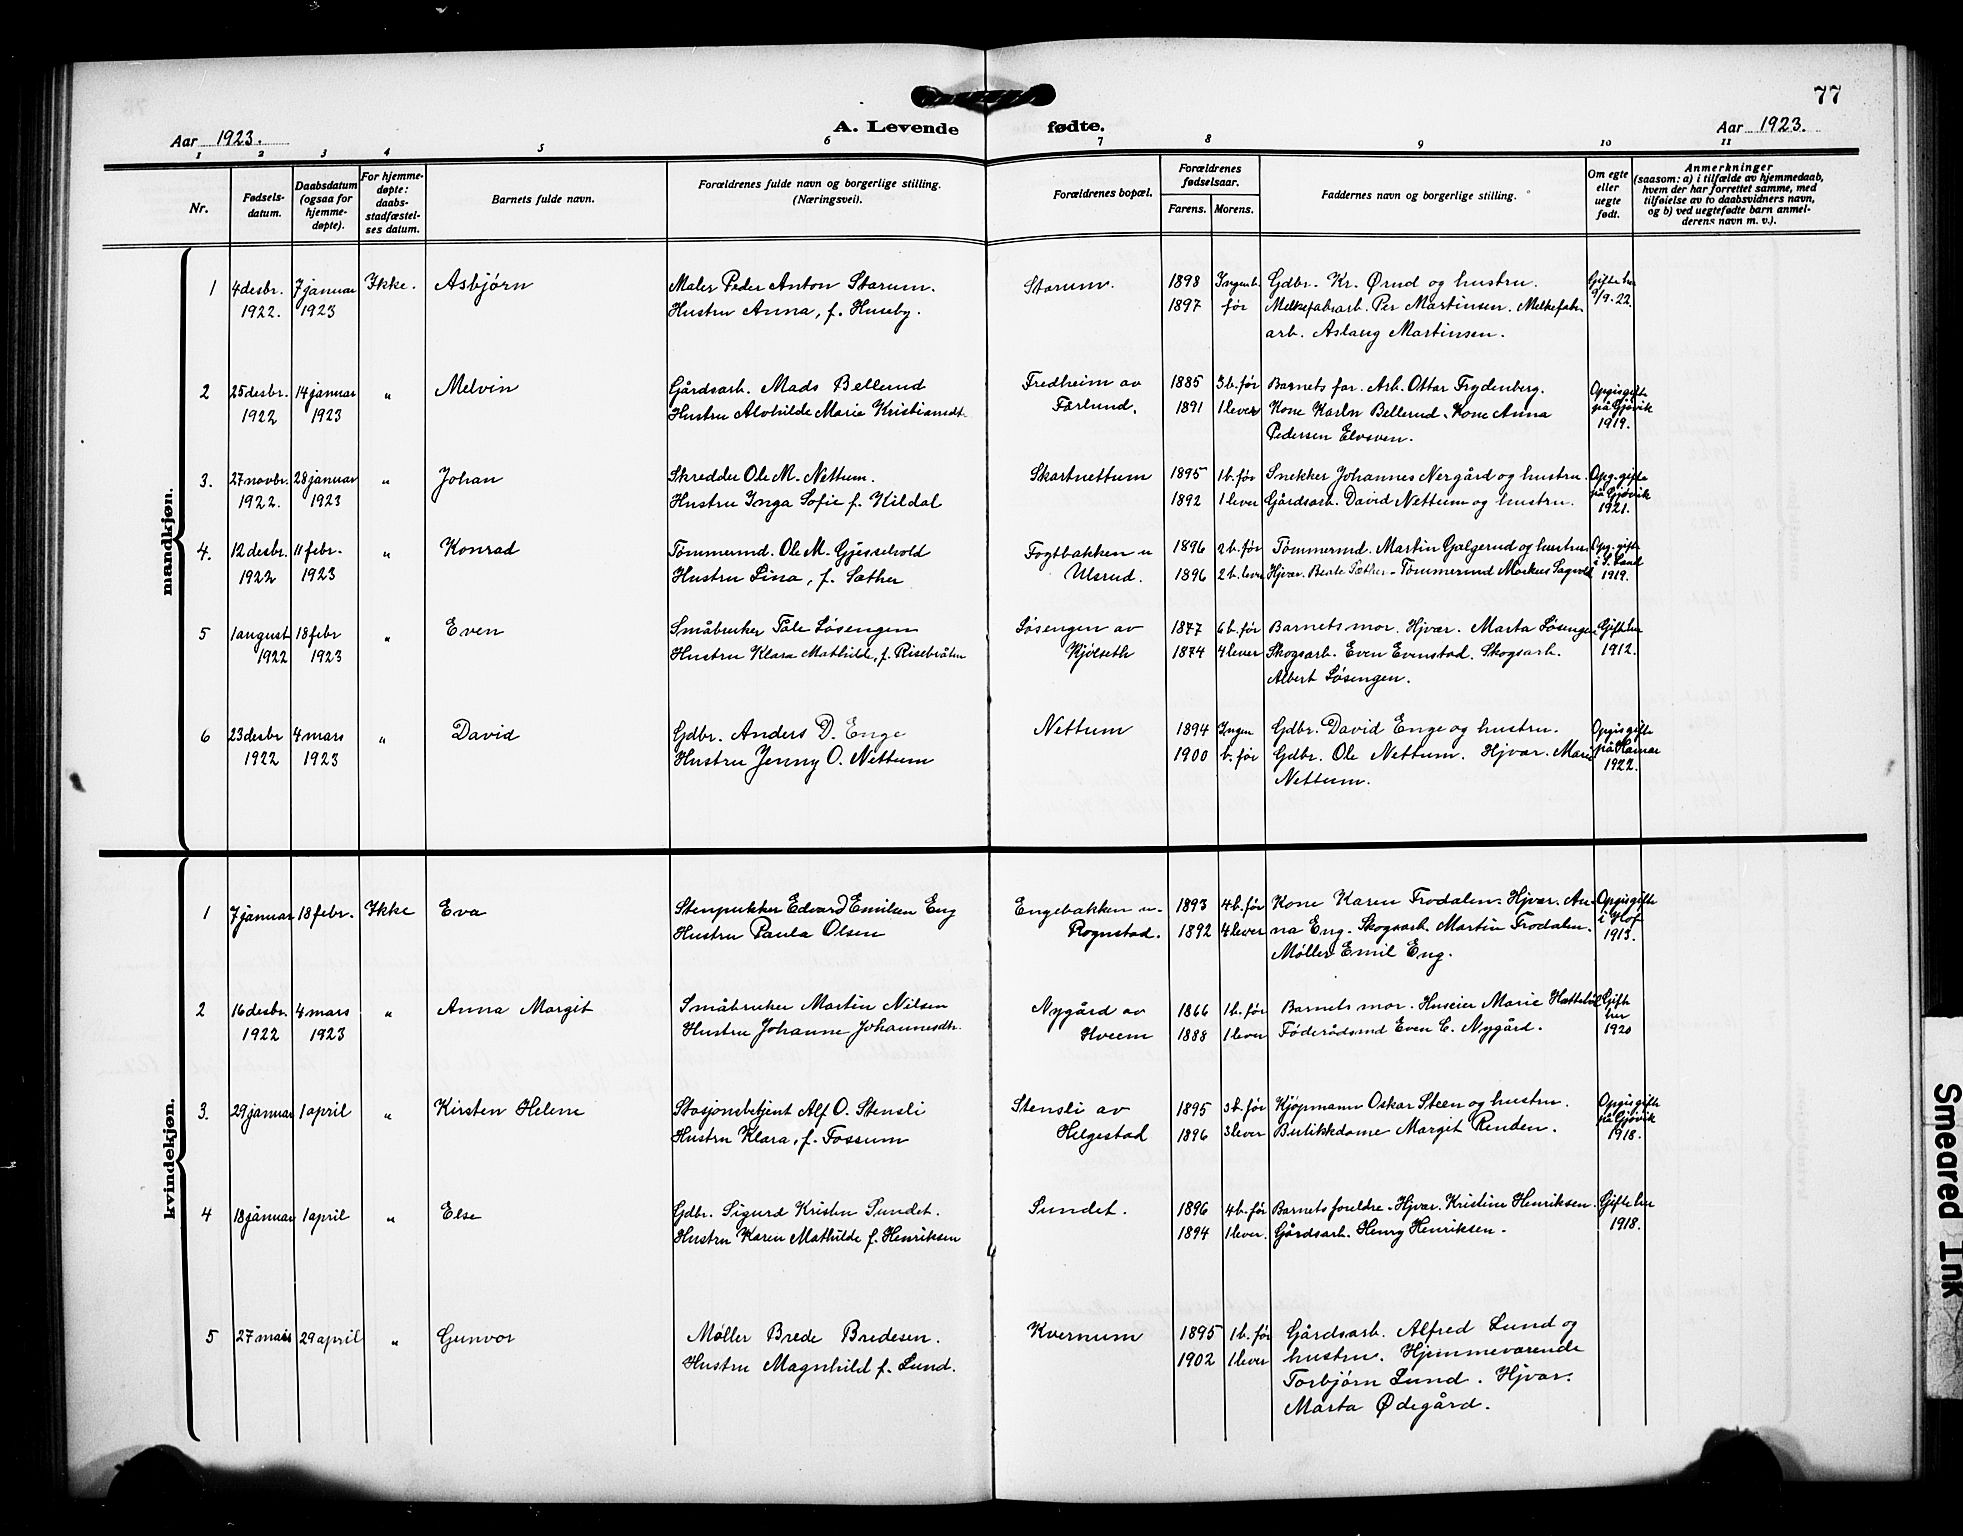 77
Aar 1923.
A. Levende fødte.
Aar 1923.
1 2 3 4 5 6 7 8 9 10 11
Nr.
Fødselsdatum.
Daabsdatum (ogsaa for hjemmedøpte).
For hjemmedøpte: daabsstadfæstelses datum.
Barnets fulde navn.
Forældrenes fulde navn og borgerlige stilling. (Næringsvei).
Forældrenes bopæl.
Forældrenes fødselsaar.
Farens. Morens.
Faddernes navn og borgerlige stilling.
Om egte eller uegte født.
Anmerkninger
(saasom: a) i tilfælde av hjemmedaab,
hvem der har forrettet samme, med
tilføielse av to daabsvidners navn,
og b) ved uegtefødte barn anmelderens navn m. v.).
mandkjøn.
1 4 desbr. 7 januar Ikke. Asbjørn Maler Peder Anton Starum. Starum. 1898 Ingen b. Gdbr. Kr. Ørud og hustru. Gifte her
1922. 1923 Hustru Anna, f. Huseby. 1897 før Melkefabrarb. Per Martinsen. Melkefabr. 9/9. 22.
arb. Aslaug Martinsen.
2 25 desbr. 14 januar " Melvin Gårdsarb. Mads Bellerud Fredheim av 1885 3 b. før Barnets far. Arb. Ottar Frydenberg. Opgis gifte
1922 1923 Hustru Alvhilde Marie Kristiansdt. Færlund. 1891 1 lever Kone Karln Bellerud. Kone Anna på Gjøvik
Pedersen Elvsven. 1919.
3. 27 novbr. 28 januar " Johan Skredder Ole M. Nettum. Skartnettum 1895 1 b. før Snekker Johannes Nergård og hustru. Opg. gifte
1922. 1923 Hustru Inga Sofie f. Kildal 1892 1 lever Gårdsarb. David Nettum og hustru. på Gjøvik
1921.
4. 12 desbr. 11 febr. " Konrad Tømmermd. Ole M. Gjessehold Fogtbakken u 1896 2 b. før Tømmermd. Martin Galgerud og hustru. Opg. gifte
1922 1923 Hustru Lina, f. Sæther Ulsrud. 1896 2 b. lever Hjvær. Beate Sæther. Tømmermd Markus Sagvold i S. Land
1919.
5 1 august 18 febr " Even Småbruker Tåle Løsengen Løsengen av 1877 6 b. før Barnets mor. Hjvær. Marta Løsengen Gifte her
1922 1923 Hustru Klara Mathilde, f. Risebråten Kjølseth 1874 4 lever Skogsarb. Even Evenstad. Skogsarb. 1912.
Albert Løsengen.
6 23 desbr 4 mars " David Gdbr. Anders D. Enge Nettum 1894 Ingen Gdbr. David Enge og hustru. Opgis gifte
1922 1923 Hustru Jenny O. Nettum 1900 b. før Gdbr. Ole Nettum. Hjvær. Marie på Hamar
Nettum. 1922.
kvindekjøn.
1 7 januar 18 febr. Ikke Eva Stenpukker Edvard Emilsen Eng Engebakken u. 1893 4 b. før Kone Karen Frodalen. Hjvær. An- Opgis gifte
Hustru Paula Olsen Rognstad. 1892 4 lever na Eng. Skogsarb. Martin Frodalen. i Hof
Møller Emil Eng. 1913.
2 16 desbr. 4 mars " Anna Margit Småbruker Martin Nilsen Nygård av 1866 1 b. før Barnets mor. Huseier Marie Hattebøl Gifte
1922 1923 Hustru Johanne Johannesdtr. Kveem 1888 1 lever Føderådsmd Even C. Nygård. her
1920
3. 29 januar 1 april " Kirsten Helene Stasjonsbetjent Alf O. Stensli Stensli av 1895 3 b. før Kjøpmann Oskar Steen og hustru. Opgis gifte
Hustru Klara, f. Fossum Helgestad 1896 3 lever Butikkdame Margit Renden. på Gjøvik
1918.
4 18 januar 1 april " Else Gdbr. Sigurd Kristen Sundet. Sundet. 1896 4 b. før Barnets foreldre. Hjvær. Kristine Henriksen. Gifte her
Hustru Karen Mathilde f. Henriksen 1894 1 lever. Gårdsarb. Henry Henriksen. 1918.
5 27 mars 29 april " Gunvor Møller Brede Bredesen. Kvernum 1895 1 b. før Gårdsarb. Alfred Lund og
Hustru Magnhild f. Lund. 1902 1 lever hustru. Hjemmeværende
Torbjørn Lund. Hjvær.
Marta Ødegård.
Smeared Ink